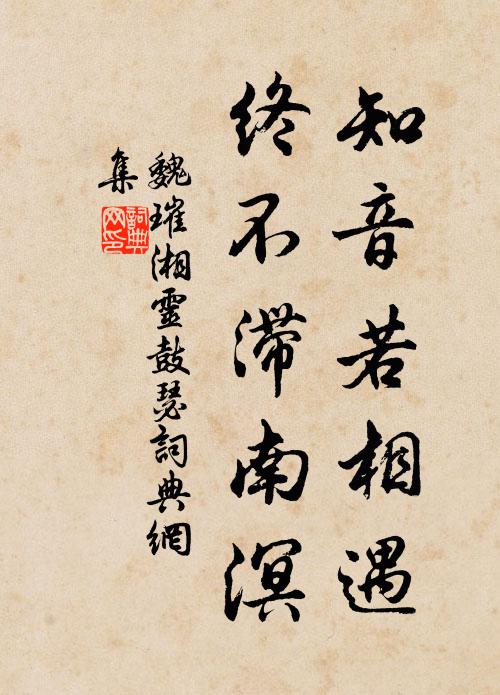 知音若相遇
終不滯南溟
魏璀湘靈鼓瑟詞典網
集
詞典網印